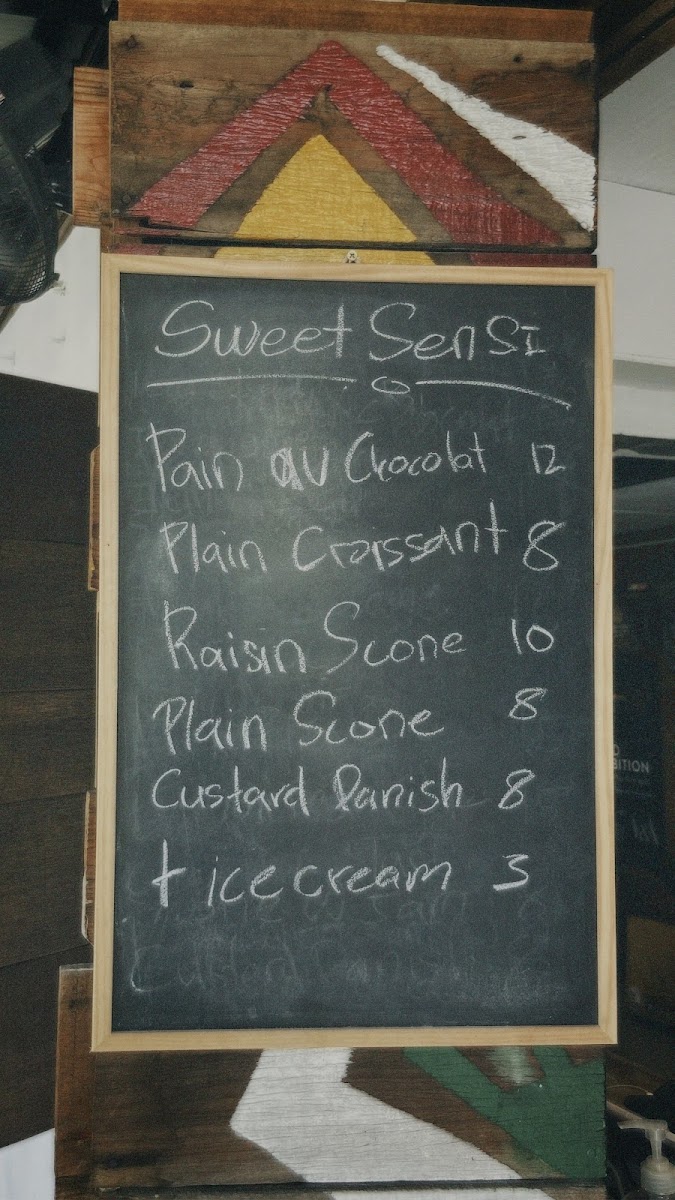 Sweet SenSI
Pain au Chocolat 12
Plain Croissant 8
Raisin Scone 10
Plain Scone 8
Custard Danish 8
+ ice cream 3
Custard Danish
BITION